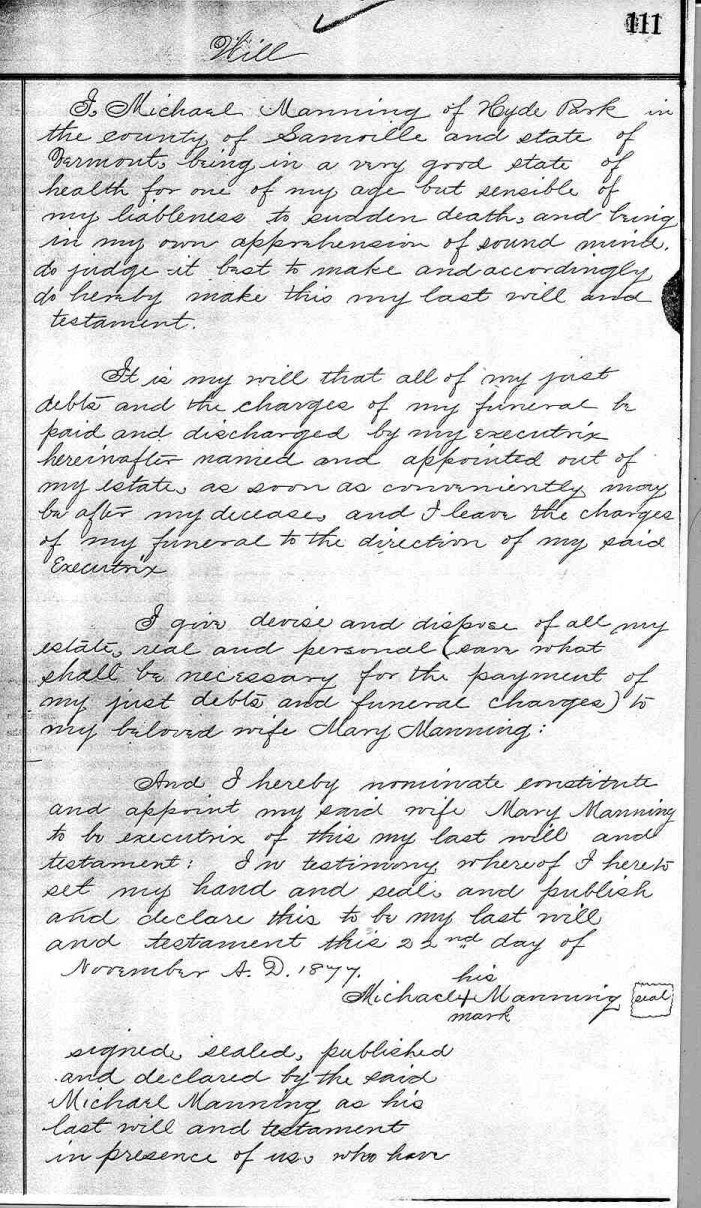 111
Will
I, Michael Manning of Hyde Park in
the county of Lamoille and state of
Vermont, being in a very good state of
health for one of my age but sensible of
my liableness to sudden death, and being
in my own apprehension of sound mind,
do judge it best to make and accordingly
do hereby make this my last will and
testament.
It is my will that all of my just
debts and the charges of my funeral be
paid and discharged by my executrix
hereinafter named and appointed out of
my estate, as soon as conveniently may
be after my decease, and I leave the charges
of my funeral to the direction of my said
Executrix
I give devise and dispose of all my
estate, real and personal (save what
shall be necessary for the payment of
my just debts and funeral charges) to
my beloved wife Mary Manning:
And I hereby nominate constitute
and appoint my said wife Mary Manning
to be executrix of this my last will and
testament: In testimony whereof I hereto
set my hand and seal, and publish
and declare this to be my last will
and testament this 22nd day of
November A.D. 1877.
his
Michael + Manning seal
mark
signed, sealed, published
and declared by the said
Michael Manning as his
last will and testament
in presence of us, who have